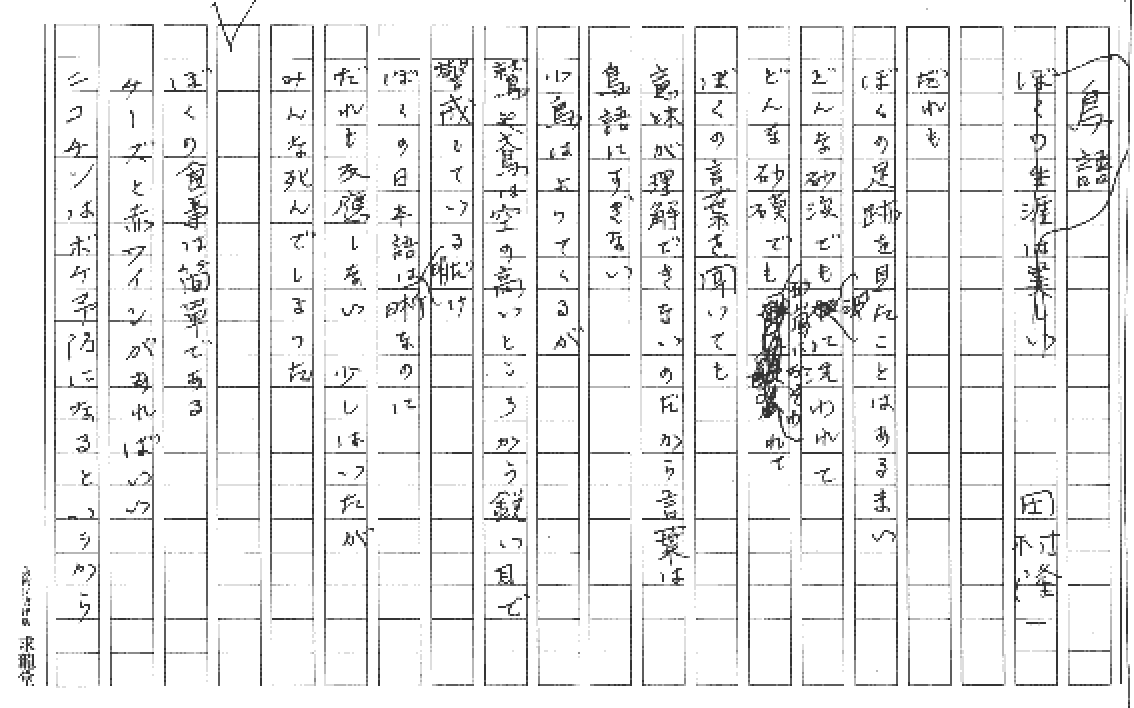 鳥語
ぼくの生涯は美しい 田村隆一
だれも
ぼくの足跡を見たことはあるまい
どんな砂漠でも 波に洗われて
どんな砂礫でも れて
ぼくの言葉を聞いても
意味が理解できないのだから言葉は
鳥語にすぎない
小鳥はよってくるが
鷲と鳶は空の高いところから鋭い目で
警戒しているだけ
ぼくの日本語は明晰なのに
だれも反応しない 少しはいたが
みんな死んでしまった
ぼくの食事は簡単である
チーズと赤ワインがあればいい
ニコチンはボケ予防になるというから